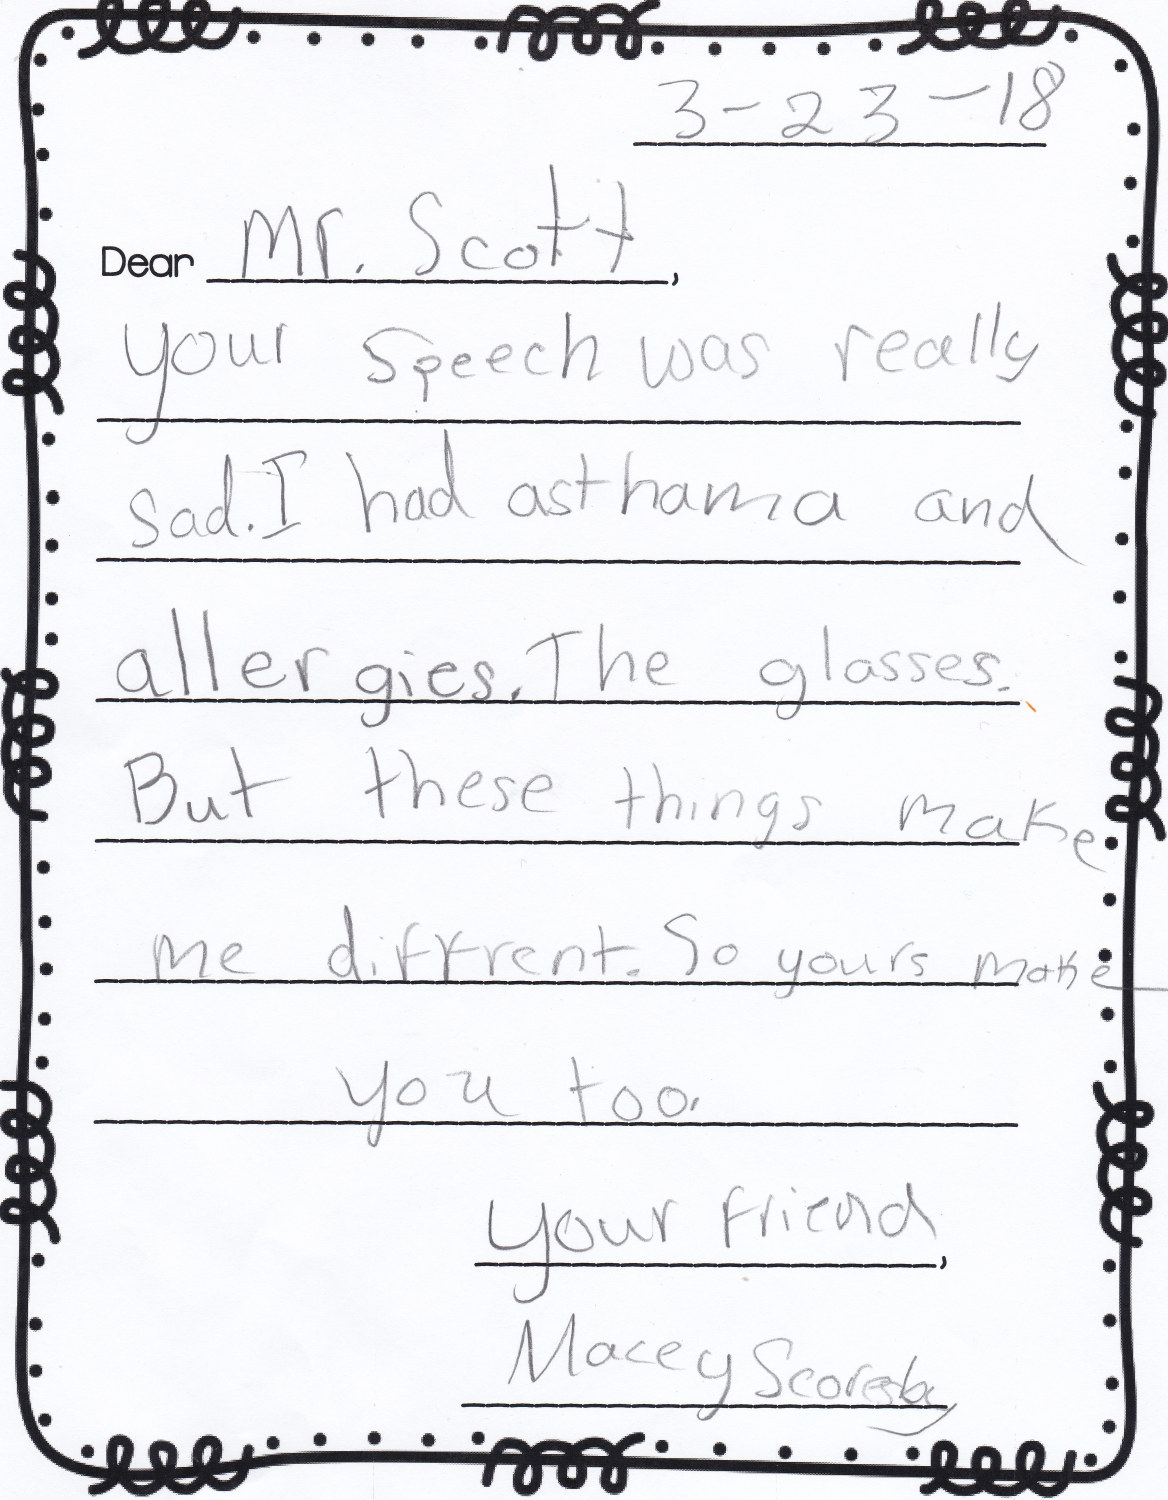 3-23-18
Dear Mr. Scott,
your speech was really
sad. I had asthama and
allergies. The glasses.
But these things make
me diffrent. So yours make
you too.
your friend,
Macey Scoresby